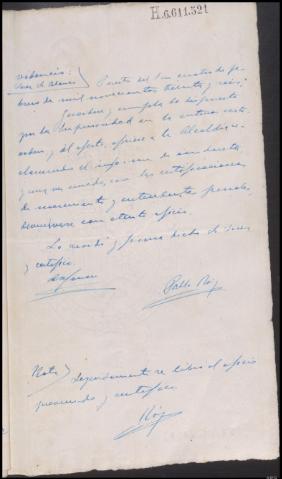 H.6.611.321
Puerto del Son cuatro de fe-
brero de mil novecientos treinta y seis;
Guárdese, cumpla lo dispuesto
por la Superioridad en la anterior carta
orden, y al efecto, ofíciese a la Alcaldía re-
clamando el informe de conducta,
y una vez unido, con las certificaciones
de nacimiento y antecedentes penales,
devuélvase con atento oficio.
Lo mandó y firma dicho Sr. Juez
y certifico.
Pablo Roj
Nota) Seguidamente se libró el oficio
prevenido y certifico
Roj